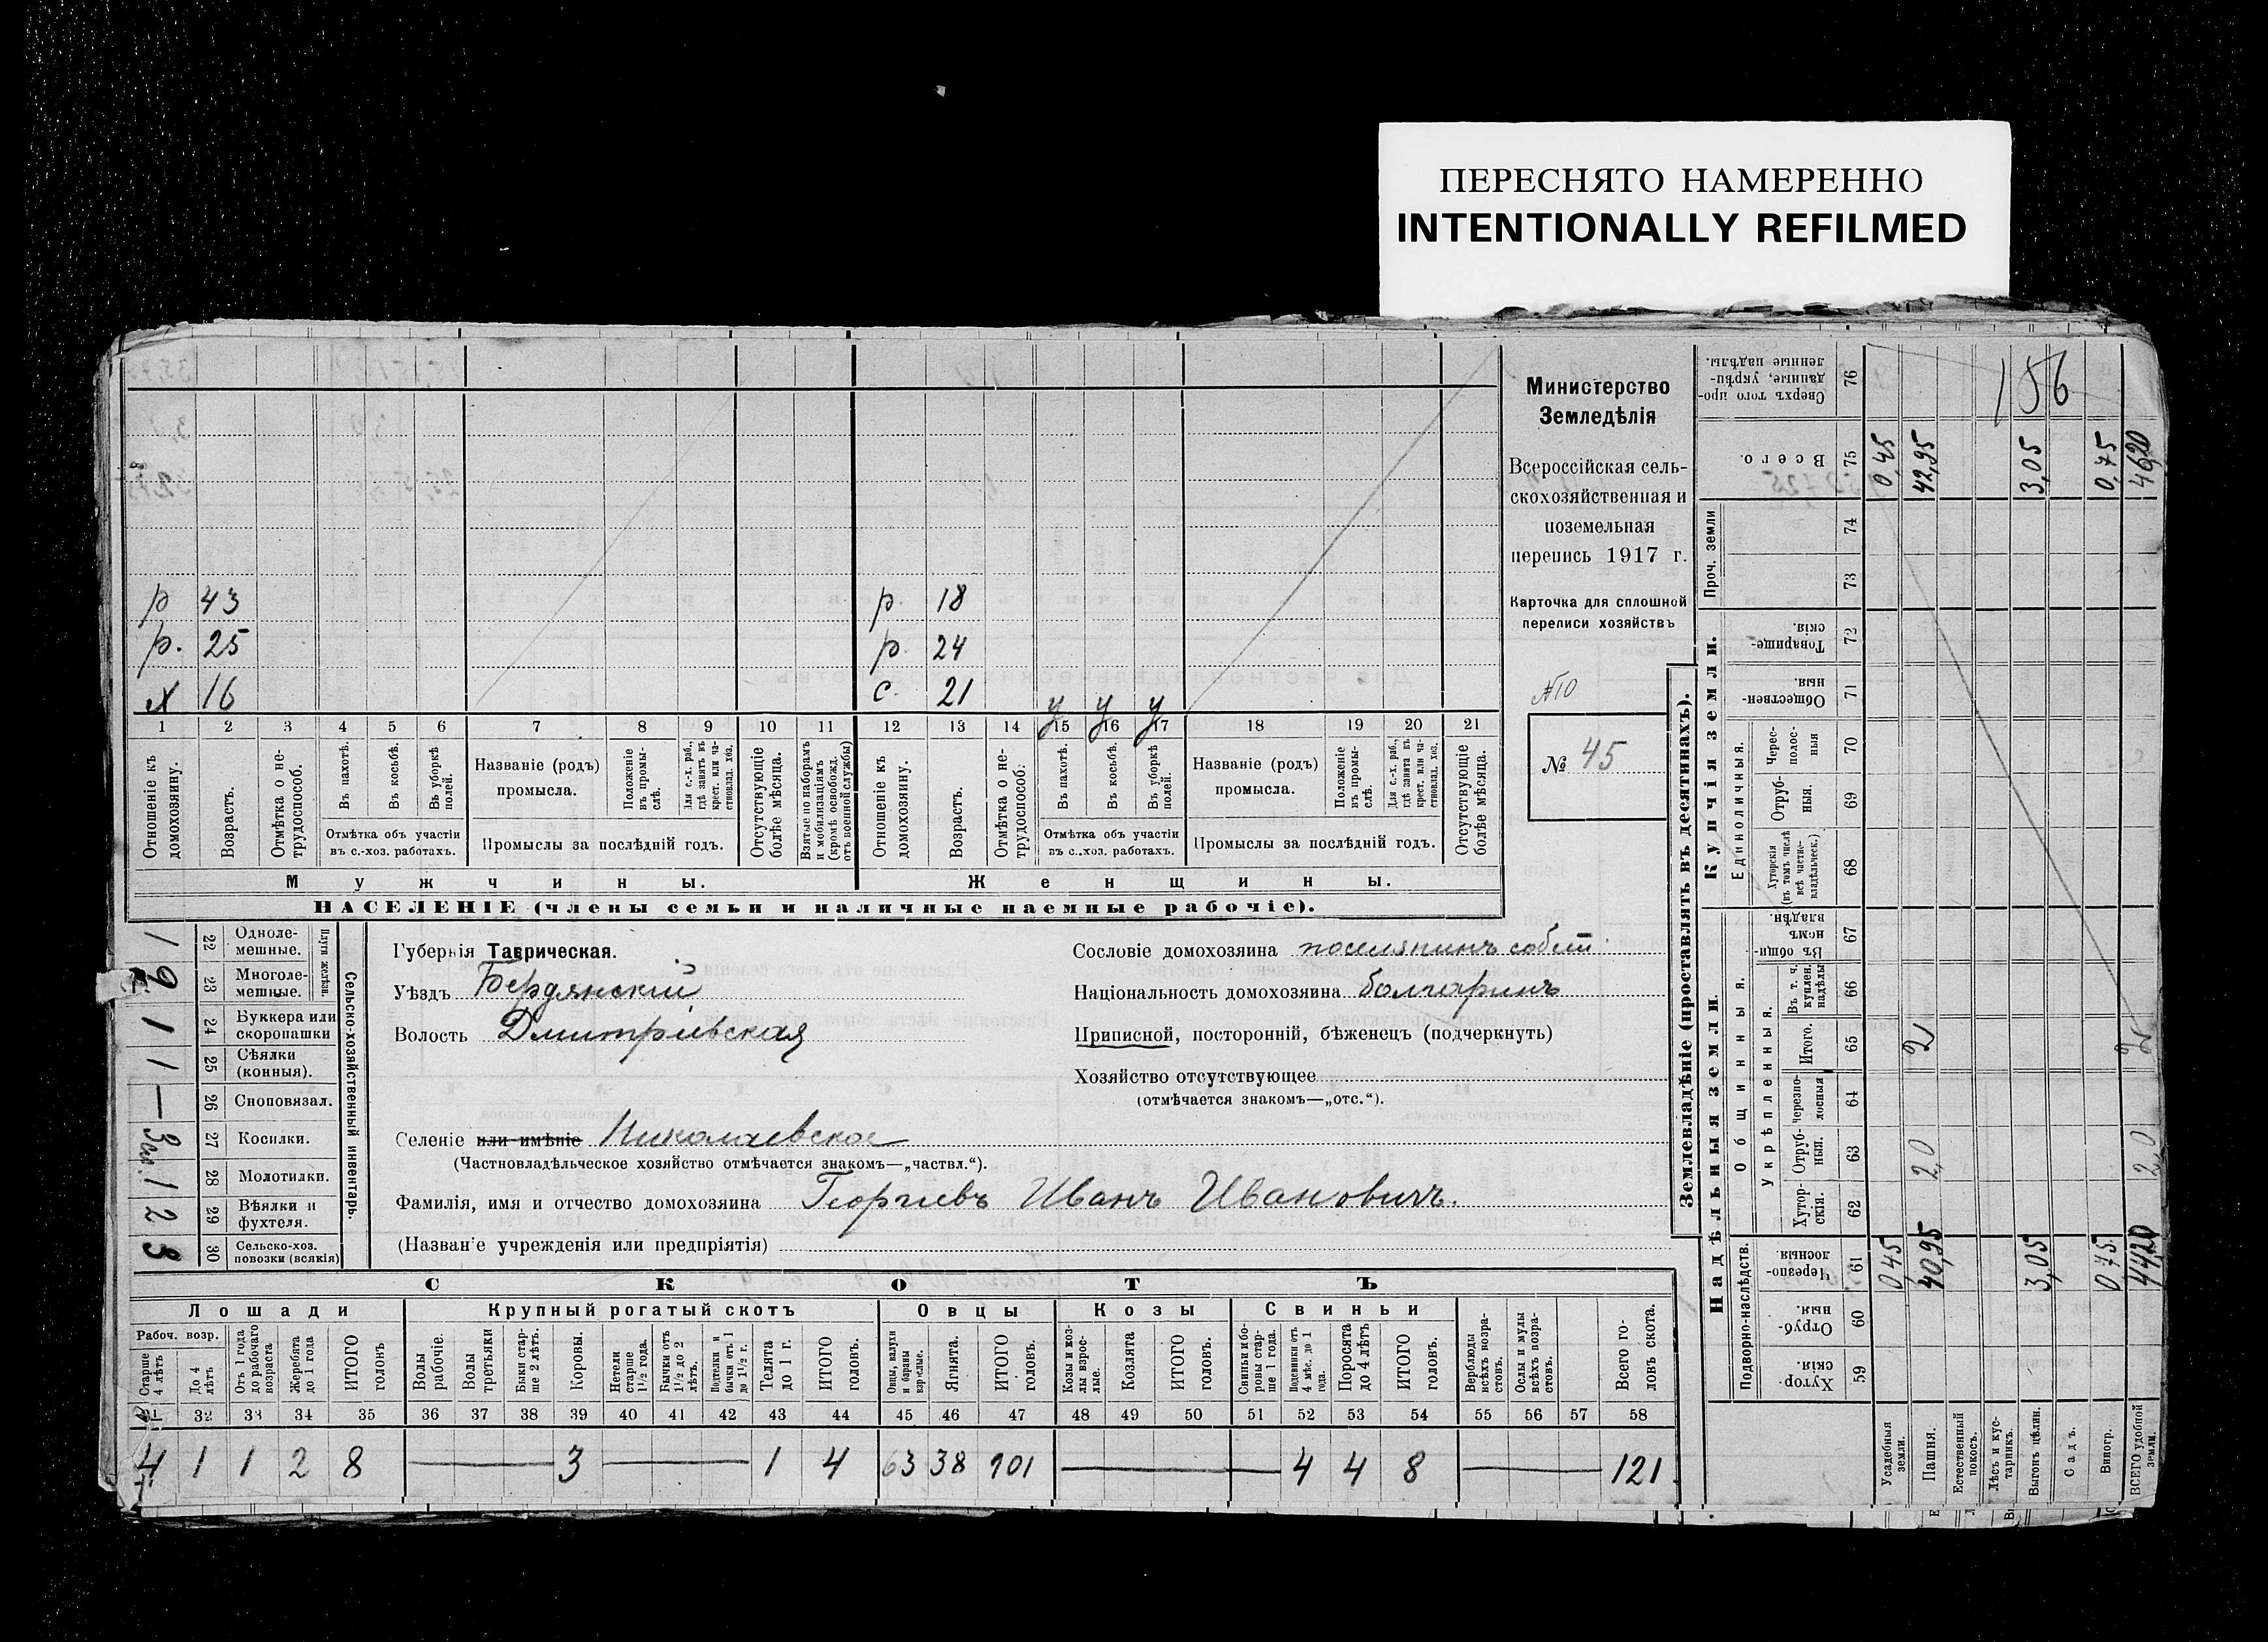 ПЕРЕСНЯТО НАМЕРЕННО
INTENTIONALLY REFILMED
Министерство
Земледѣлія
Всероссійская сель-
скохозяйственная и
поземельная
перепись 1917 г.
Карточка для сплошной
переписи хозяйствъ
№10
№ 45
р 43 р 18
р. 25 р. 24
х 16 с. 21 у у у
1 2 3 4 5 6 7 8 9 10 11 12 13 14 15 16 17 18 19 20 21
Отношеніе къ домохозяину.
Возрастъ.
Отмѣтка о не-трудоспособ.
Въ пахотѣ.
Въ косьбѣ.
Въ уборкѣ полей.
Отмѣтка объ участіи
въ с.-хоз. работахъ.
Названіе (родъ)
промысла.
Положеніе въ промы-слѣ.
Для с.-х. раб., гдѣ занятъ въ крест. или ча-стновлад. хоз.
Промыслы за послѣдній годъ.
Отсутствующіе болѣе мѣсяца.
Взятые по наборамъ и мобилизаціямъ (кромѣ освобожд. отъ военной службы)
Отношеніе къ домохозяину.
Возрастъ.
Отмѣтка о не-трудоспособ.
Въ пахотѣ.
Въ косьбѣ.
Въ уборкѣ полей.
Отмѣтка объ участіи
въ с.-хоз. работахъ.
Названіе (родъ)
промысла.
Положеніе въ промы-слѣ.
Для с.-х. раб., гдѣ занята въ крест. или ча-стновлад. хоз.
Промыслы за послѣдній годъ.
Отсутствующіе болѣе мѣсяца.
Мужчины. Женщины.
НАСЕЛЕНІЕ (члены семьи и наличные наемные рабочіе).
Сельско-хозяйственный инвентарь.
Плуги желѣзн.
1 22 Одноле-мешные.
1 23 Многоле-мешные.
1 24 Буккера или скоропашки
1 25 Сѣялки (конныя).
— 26 Сноповязал.
27 Косилки.
1 28 Молотилки.
2 29 Вѣялки и фухтеля.
3 30 Сельско-хоз. повозки (всякія)
Губернія Таврическая.
Уѣздъ Бердянскій
Волость Дмитріевская
Селеніе или имѣніе Николаевское
(Частновладѣльческое хозяйство отмѣчается знакомъ—„частвл.“).
Фамилія, имя и отчество домохозяина Георгіевъ Иванъ Ивановичъ.
(Названіе учрежденія или предпріятія)
Сословіе домохозяина поселянинъ собств
Національность домохозяина болгаринъ
Приписной, посторонній, бѣженецъ (подчеркнуть)
Хозяйство отсутствующее
(отмѣчается знакомъ—„отс.“).
СКОТЪ
Лошади Крупный рогатый скотъ Овцы Козы Свиньи
Рабоч. возр.
Старше 4 лѣтъ
До 4 лѣтъ
Отъ 1 года до рабочаго возраста
Жеребята до 1 года
ИТОГО головъ
Волы рабочіе.
Волы третьяки
Быки стар-ше 2 лѣтъ.
Коровы.
Нетели старше 1½ года.
Бычки отъ 1½ до 2 лѣтъ.
Подтелки и бычки отъ 1 до 1½ г.
Телята до 1 г.
ИТОГО головъ.
Овцы, валухи и бараны взрослые.
Ягнята.
ИТОГО головъ.
Козы и коз-лы взрос-лые.
Козлята
ИТОГО головъ.
Свиньи и бо-ровы стар-ше 1 года.
Подсвинки отъ 4 мѣс. до 1 года.
Поросята до 4 лѣтъ
ИТОГО головъ.
Верблюды всѣхъ возра-стовъ.
Ослы и мулы всѣхъ возра-стовъ.
Всего го-ловъ скота.
31 32 33 34 35 36 37 38 39 40 41 42 43 44 45 46 47 48 49 50 51 52 53 54 55 56 57 58
4 1 1 2 8 — 3 — 1 4 63 38 101 — 4 4 8 — 121
Землевладѣніе (проставлять въ десятинахъ).
Надѣльныя земли. Купчія земли. Проч. земли
Подворно-наслѣдств.
Общинныя.
Укрѣпленныя.
Единоличныя.
Сверхъ того про-данные, укрѣп-ленные надѣлы. 76
Всего. 75
74
73
Товарище-скія. 72
Обществен-ныя. 71
Черес-полос-ныя 70
Отруб-ныя. 69
Хуторскія (въ томъ числѣ всѣ частно-владѣльческ.) 68
Въ общин-номъ владѣн. 67
Въ т. ч. куплен. надѣлы 66
Итого. 65
черезпо-лосныя 64
Отруб-ныя. 63
Хутор-скія. 62
Черезпо-лосныя 61
Отруб-ныя. 60
Хутор-скія. 59
156
0,45 42,95 3,05 0,75 46,20
2 2
2,0 2,0
0,45 40,95 3,05 0,75 44,20
Усадебныя земли.
Пашня.
Естественный покосъ.
Лѣсъ и кус-тарникъ.
Выгонъ цѣлин.
Садъ.
Виногр.
ВСЕГО удобной земли.